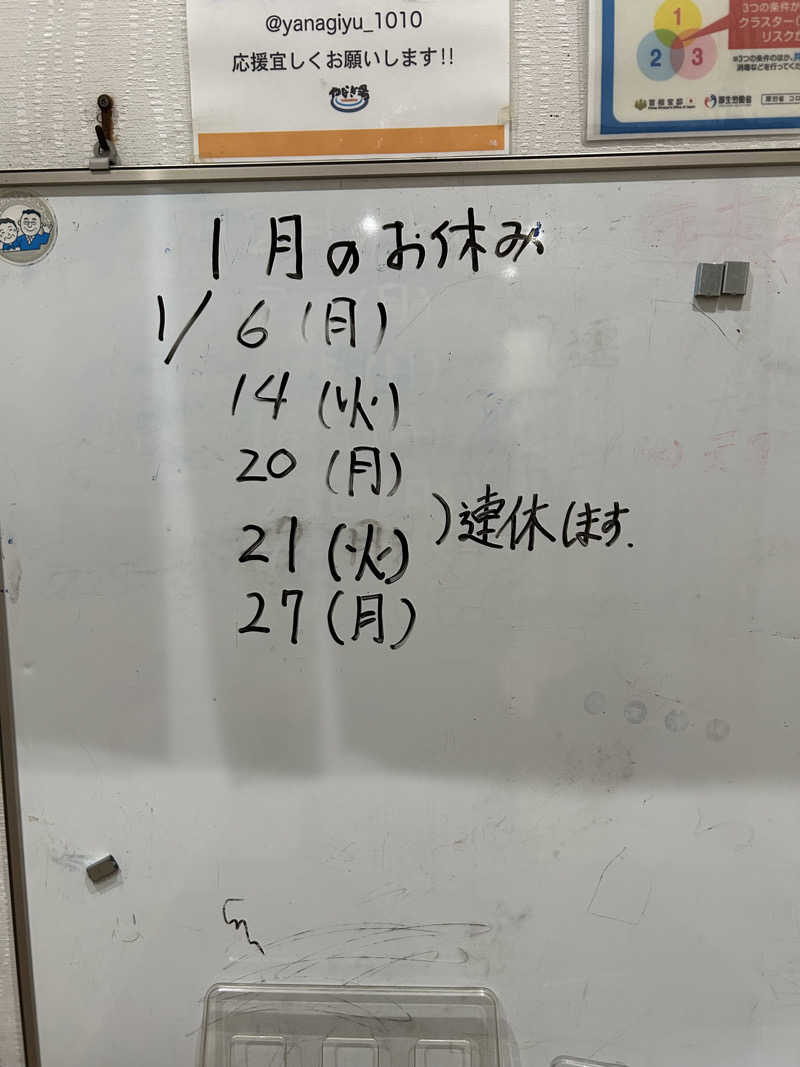 @yanagiyu_1010
応援宜しくお願いします!!
やなぎ湯
1
2
3
3つの条件が
クラスター(
リスクが
※3つの条件のほか、
消毒などを行ってくだ
首相官邸
厚生労働省
厚労省 コロ
1月のお休み
1/6(月)
14(火)
20(月)
21(火) )連休します.
27(月)